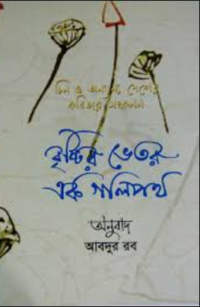 চীন ও অন্যান্য দেশের
কবিতার সংকলন
বৃষ্টির ভেতর
এক গলিপথ
অনুবাদ
আবদুর রব